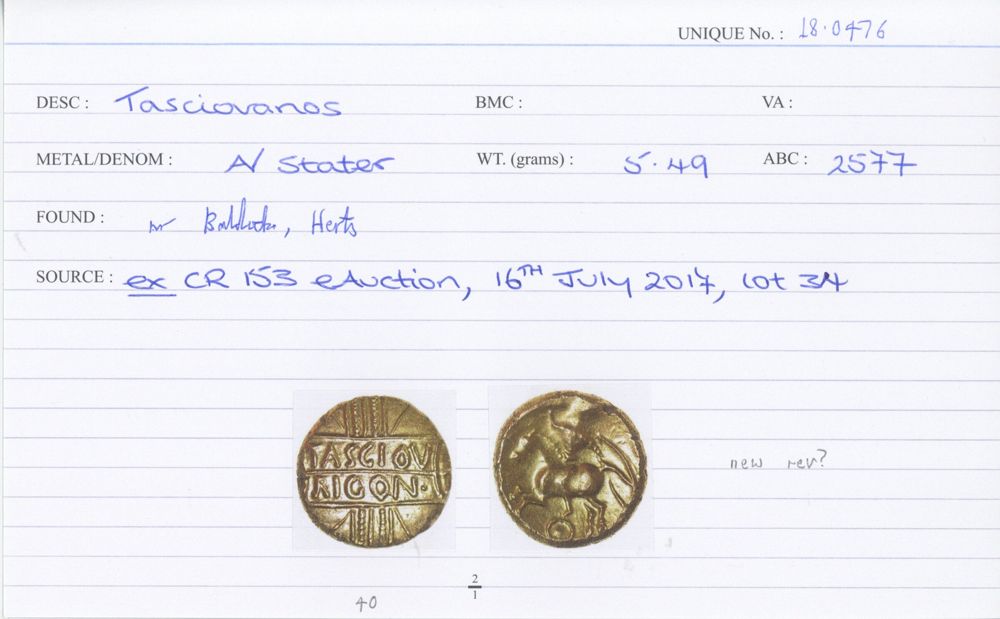 UNIQUE No. : 18.0476
DESC : Tasciovanos BMC : VA :
METAL/DENOM : A/ Stater WT. (grams) : 5.49 ABC : 2577
FOUND : nr Baldock, Herts
SOURCE : ex CR 153 eAuction, 16TH July 2017, lot 34
TASCIOV
RICON·
new rev?
2
1
40